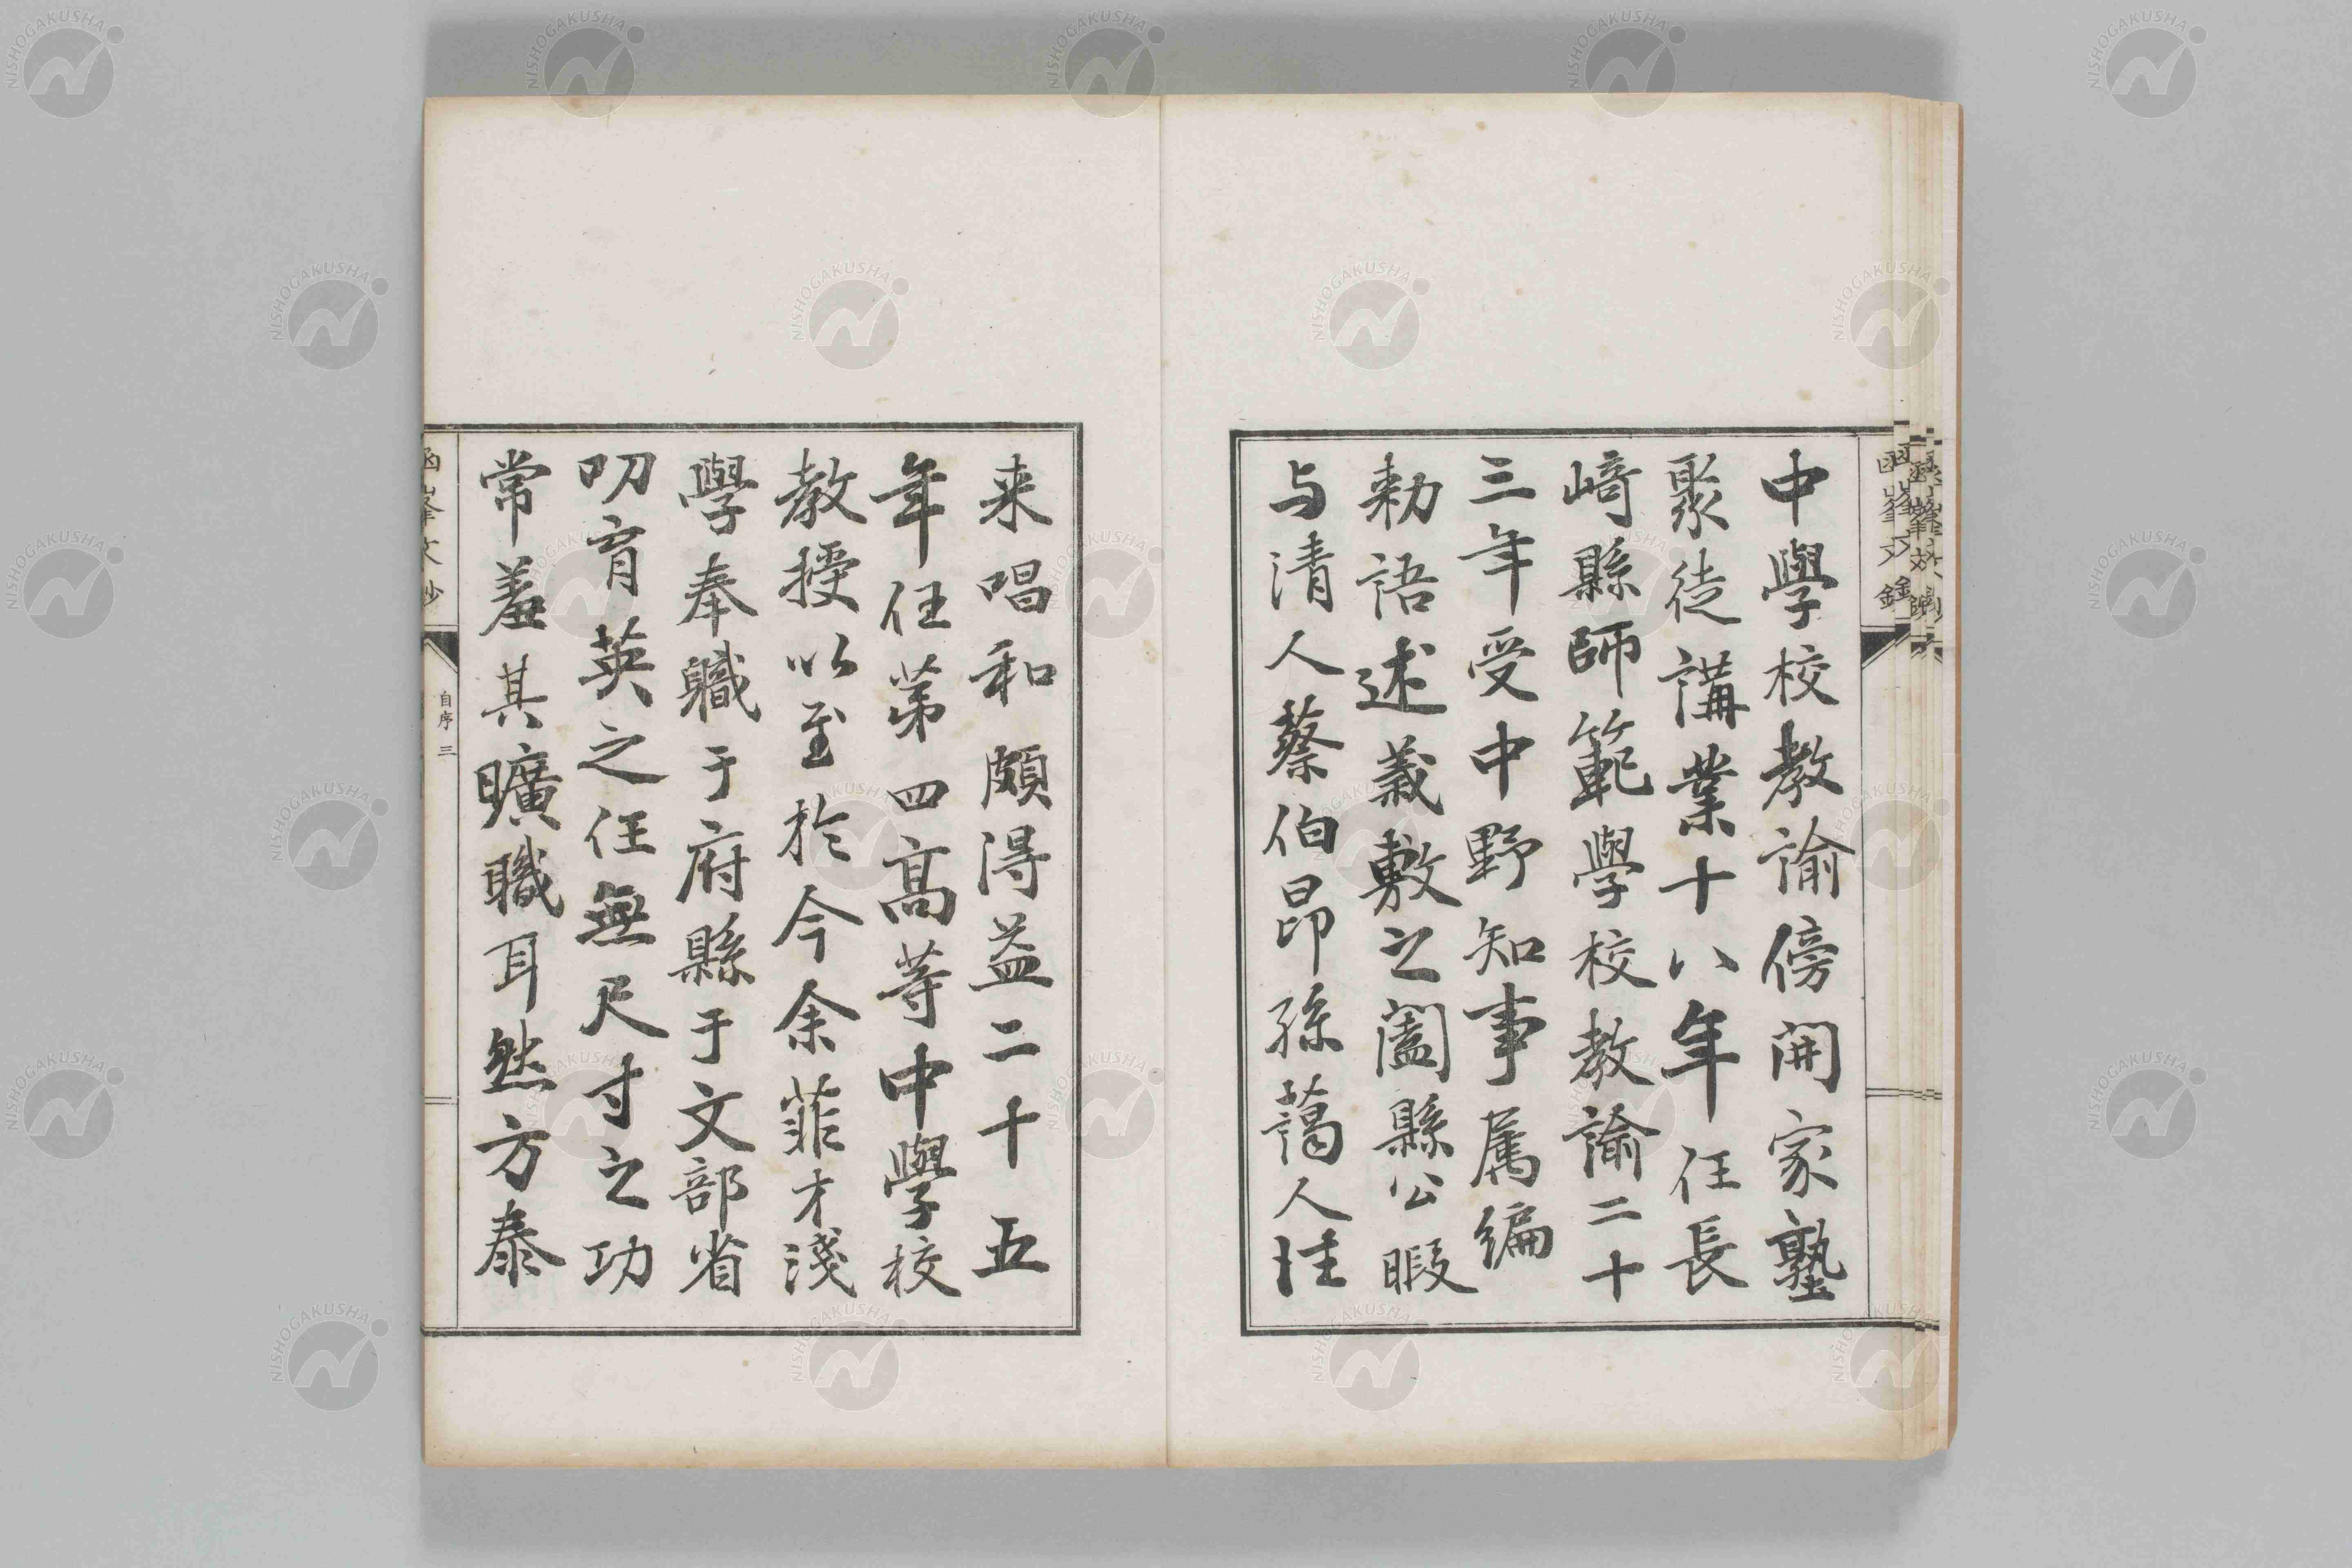 中學校教諭傍開家塾
聚徒講業十八年任長
崎縣師範學校教諭二十
三年受中野知事属編
勅語述義敷之闔縣公暇
与清人蔡伯昂孫藹人往
来唱和頗得益二十五
年任第四高等中學校
教授以至於今余菲才淺
學奉職于府縣于文部省
叨育英之任無尺寸之功
常羞其曠職耳然方泰
函峯文鈔
自序 三
NISHOGAKUSHA